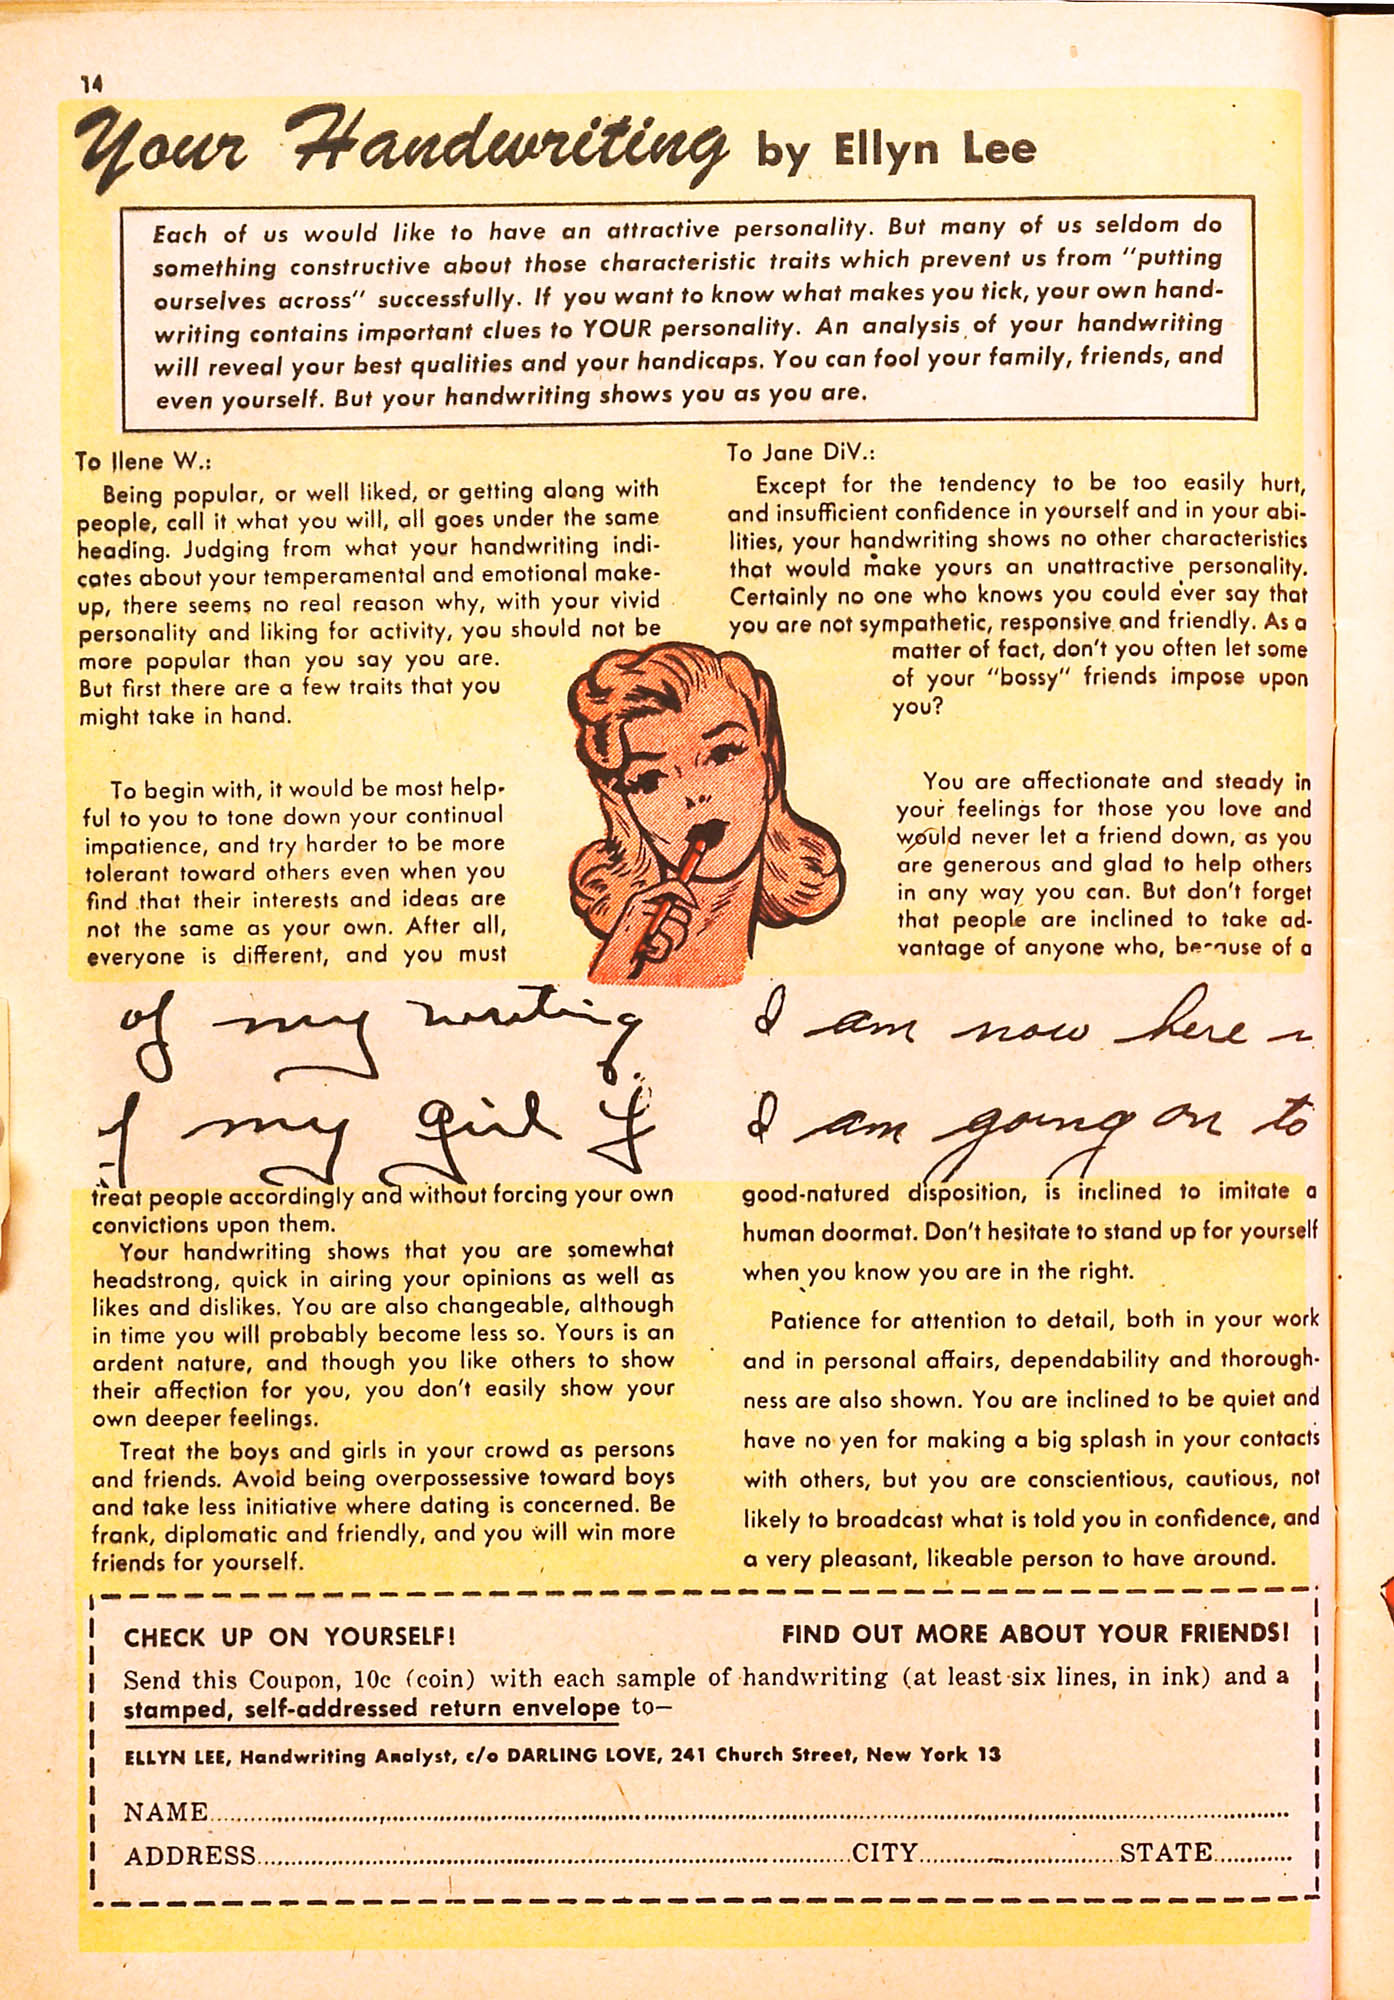 14
Your Handwriting by Ellyn Lee
Each of us would like to have an attractive personality. But many of us seldom do
something constructive about those characteristic traits which prevent us from "putting
ourselves across" successfully. If you want to know what makes you tick, your own hand-
writing contains important clues to YOUR personality. An analysis of your handwriting
will reveal your best qualities and your handicaps. You can fool your family, friends, and
even yourself. But your handwriting shows you as you are.
To Ilene W.:
Being popular, or well liked, or getting along with
people, call it what you will, all goes under the same
heading. Judging from what your handwriting indi-
cates about your temperamental and emotional make-
up, there seems no real reason why, with your vivid
personality and liking for activity, you should not be
more popular than you say you are.
But first there are a few traits that you
might take in hand.
To begin with, it would be most help-
ful to you to tone down your continual
impatience, and try harder to be more
tolerant toward others even when you
find that their interests and ideas are
not the same as your own. After all,
everyone is different, and you must
of my writing
my girl
treat people accordingly and without forcing your own
convictions upon them.
Your handwriting shows that you are somewhat
headstrong, quick in airing your opinions as well as
likes and dislikes. You are also changeable, although
in time you will probably become less so. Yours is an
ardent nature, and though you like others to show
their affection for you, you don't easily show your
own deeper feelings.
Treat the boys and girls in your crowd as persons
and friends. Avoid being overpossessive toward boys
and take less initiative where dating is concerned. Be
frank, diplomatic and friendly, and you will win more
friends for yourself.
To Jane DiV.:
Except for the tendency to be too easily hurt,
and insufficient confidence in yourself and in your abi-
lities, your handwriting shows no other characteristics
that would make yours an unattractive personality.
Certainly no one who knows you could ever say that
you are not sympathetic, responsive and friendly. As a
matter of fact, don't you often let some
of your "bossy" friends impose upon
you?
You are affectionate and steady in
your feelings for those you love and
would never let a friend down, as you
are generous and glad to help others
in any way you can. But don't forget
that people are inclined to take ad-
vantage of anyone who, because of a
I am now here
I am going on to
good-natured disposition, is inclined to imitate a
human doormat. Don't hesitate to stand up for yourself
when you know you are in the right.
Patience for attention to detail, both in your work
and in personal affairs, dependability and thorough-
ness are also shown. You are inclined to be quiet and
have no yen for making a big splash in your contacts
with others, but you are conscientious, cautious, not
likely to broadcast what is told you in confidence, and
a very pleasant, likeable person to have around.
CHECK UP ON YOURSELF! FIND OUT MORE ABOUT YOUR FRIENDS!
Send this Coupon, 10c (coin) with each sample of handwriting (at least six lines, in ink) and a
stamped, self-addressed return envelope to—
ELLYN LEE, Handwriting Analyst, c/o DARLING LOVE, 241 Church Street, New York 13
NAME
ADDRESS CITY STATE